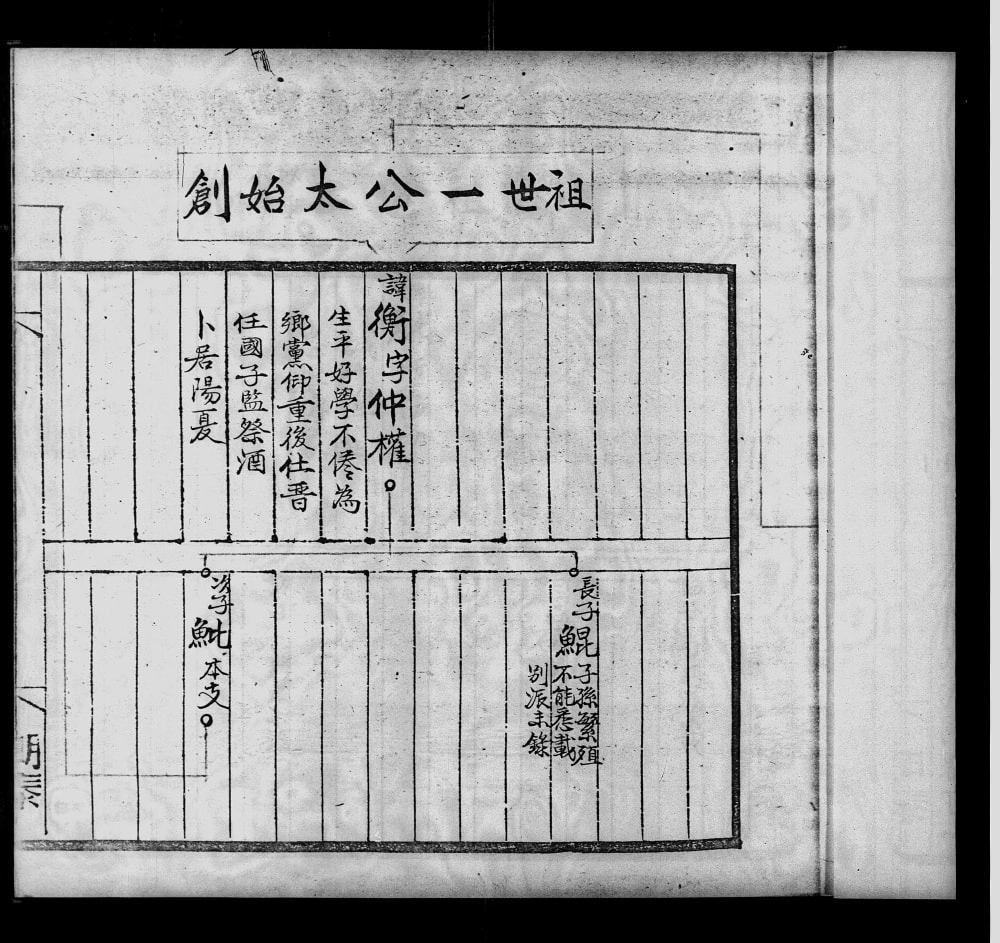 創始太公一世祖
諱衡字仲權
生平好學不倦為
鄉黨仰重後仕晋
任國子監祭酒
卜居陽夏
長子鯤
子孫繁殖
不能悉載
別派未錄
次子魮本支